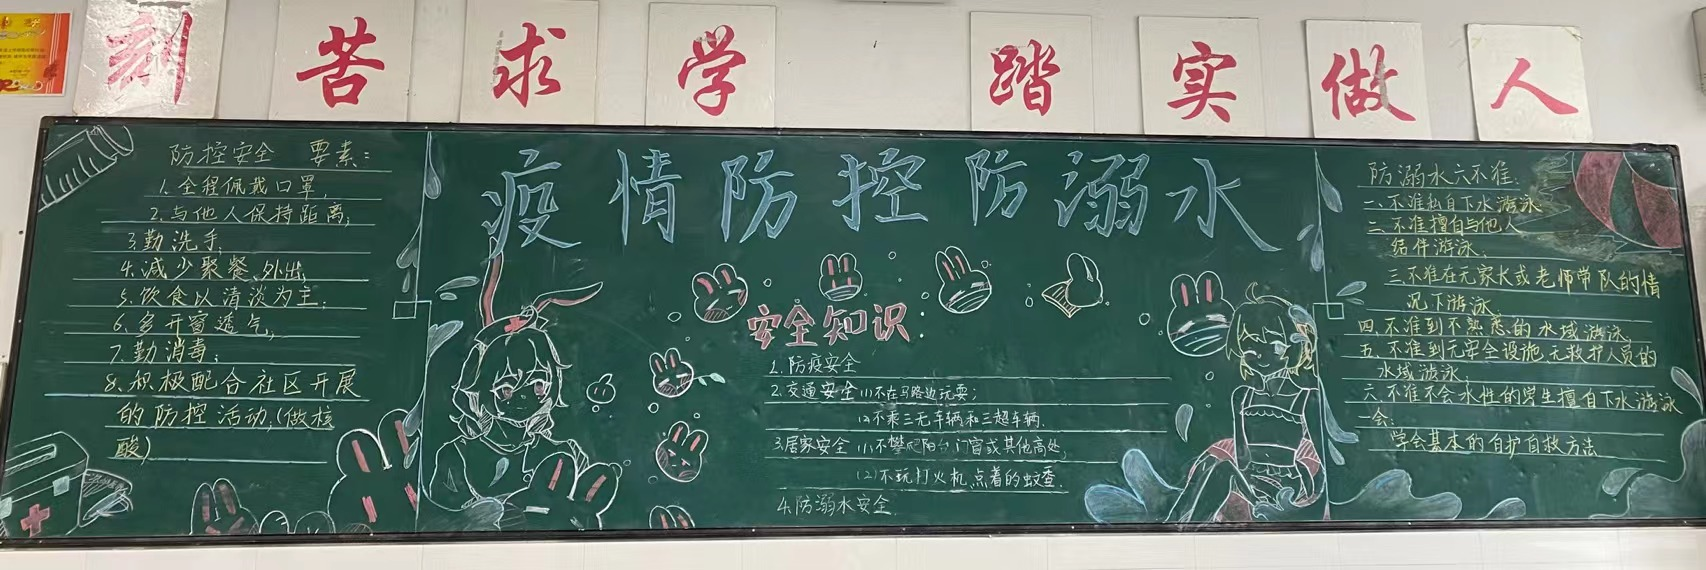 刻苦求学 踏实做人
疫情防控防溺水
防控安全 要素:
1.全程佩戴口罩,
2.与他人保持距离;
3.勤洗手,
4.减少聚餐、外出
5.饮食以清淡为主.
6.多开窗透气,
7.勤消毒;
8.积极配合社区开展
的防控活动,(做核
酸)
安全知识
1.防疫安全
2.交通安全(1)不在马路边玩耍;
(2)不乘三无车辆和三超车辆.
3.居家安全(1)不攀爬阳台,门窗或其他高处,
(2)不玩打火机,点着的蚊香.
4.防溺水安全.
防溺水六不准:
一、不准私自下水游泳.
二、不准擅自与他人
结伴游泳.
三、不准在无家长或老师带队的情
况下游泳.
四、不准到不熟悉的水域游泳.
五、不准到无安全设施,无救护人员的
水域游泳.
六、不准不会水性的学生擅自下水游泳
一会:
学会基本的自护自救方法